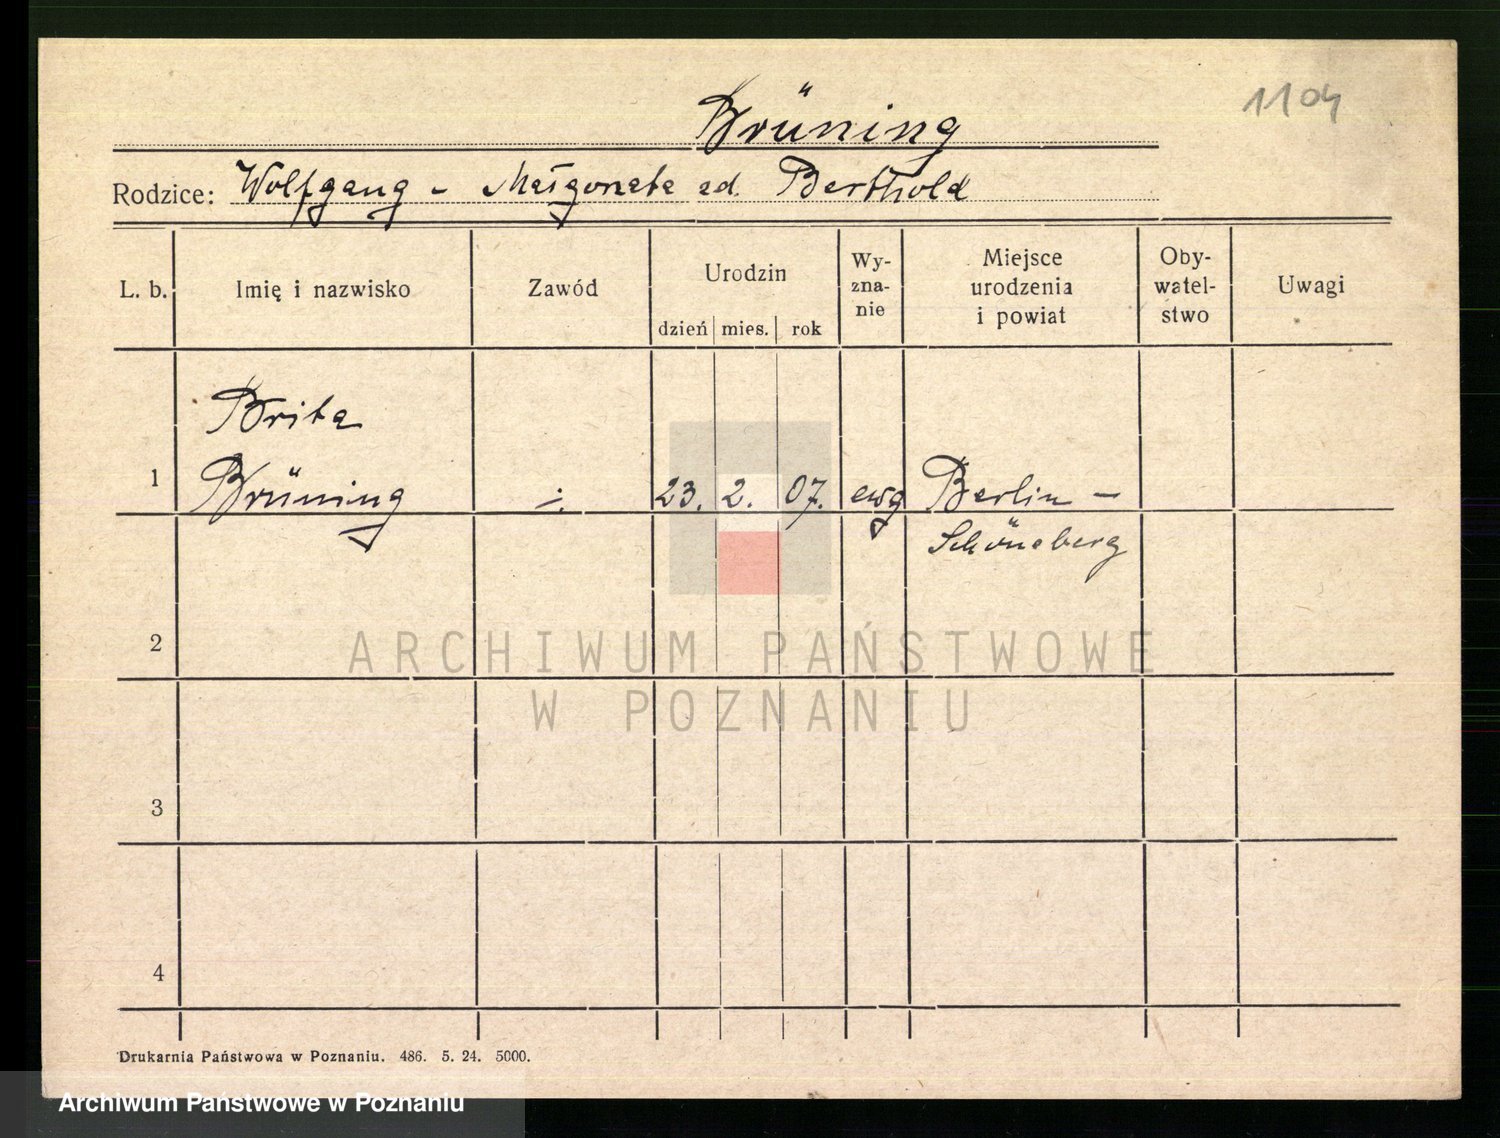 1104
Brüning
Rodzice: Wolfgang - Małgorzata zd. Berthold
L. b. Imię i nazwisko Zawód Urodzin dzień mies. rok Wy-zna-nie Miejsce urodzenia i powiat Oby-watel-stwo Uwagi
Brita
1 Brüning ÷ 23. 2. 07. ewg Berlin -
Schöneberg
2
ARCHIWUM PAŃSTWOWE
W POZNANIU
3
4
Drukarnia Państwowa w Poznaniu. 486. 5. 24. 5000.
Archiwum Państwowe w Poznaniu